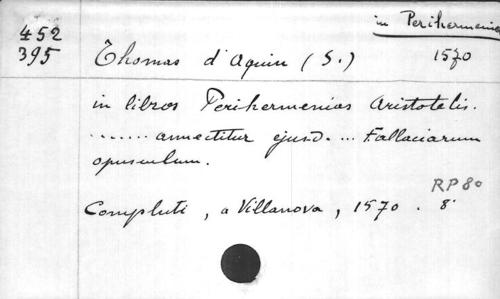 in Perihermenia
452
395
Thomas d'Aquin (S.) 1570
in libros Perihermenias Aristotelis.
....... annectitur ejusd. ... Fallaciarum
opusculum.
RP 80
Compluti, a Villanova, 1570. 8°